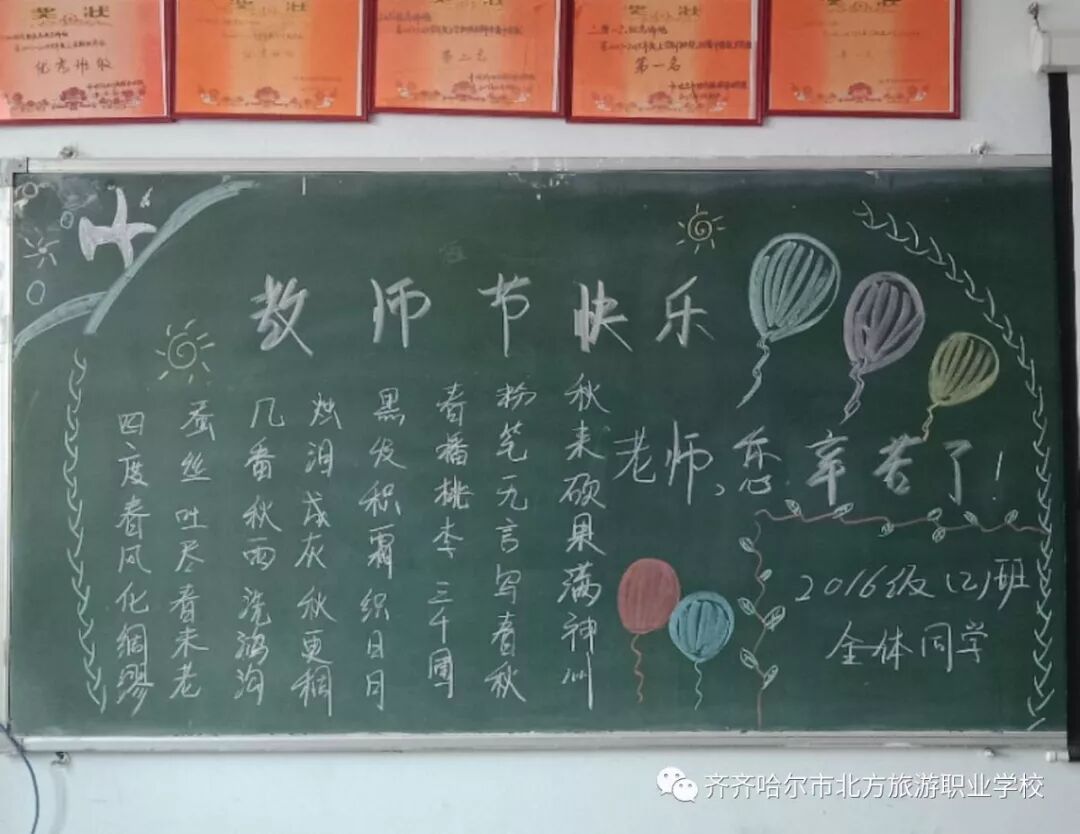 奖状
奖状
奖状
奖状
奖状
第一名
教师节快乐
秋来硕果满神州
粉笔无言写春秋
春播桃李三千圃
黑发积霜织日月
烛泪成灰秋更稠
几番秋雨洗鸿沟
蚕丝吐尽春来老
四度春风化绸缪
老师,您辛苦了!
2016级(2)班
全体同学
齐齐哈尔市北方旅游职业学校